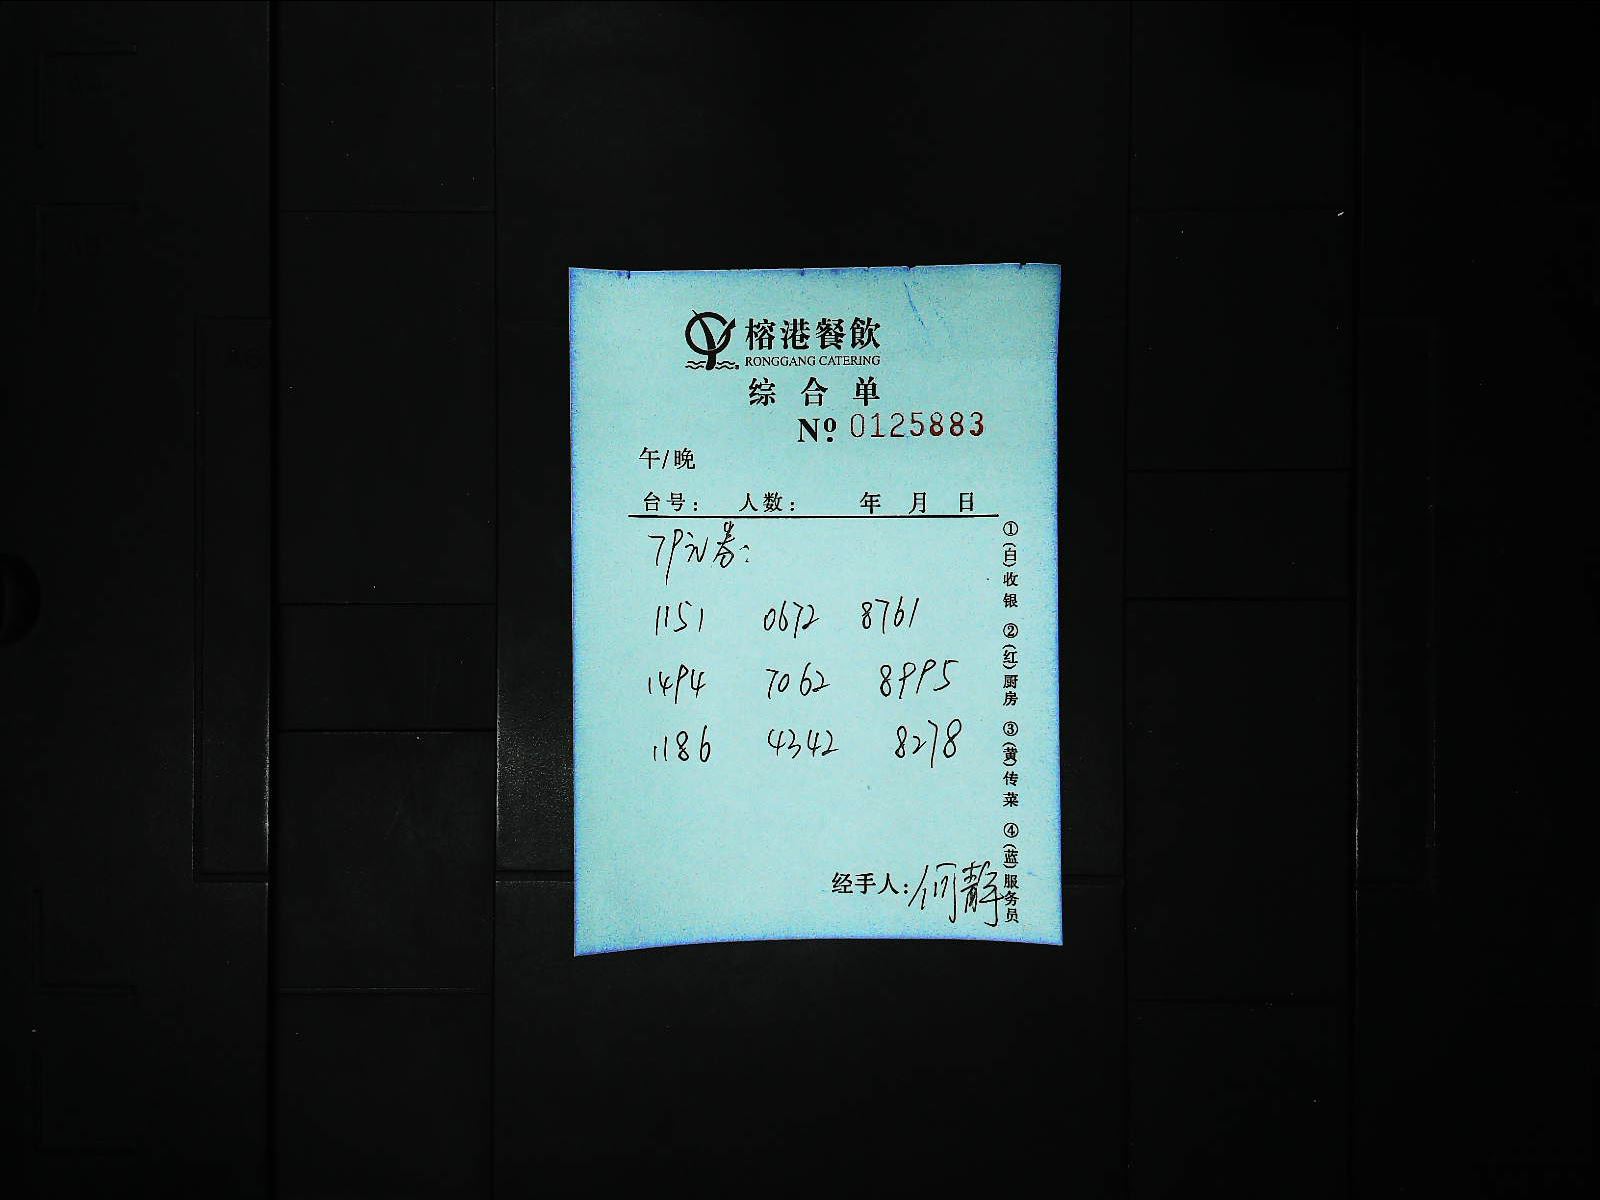 榕港餐飲
RONGGANG CATERING
综合单
Nº 0125883
午/晚
台号: 人数: 年 月 日
79元券:
1151 0672 8761
1494 7062 8995
1186 4342 8278
经手人:何静
①(白)收银 ②(红)厨房 ③(黄)传菜 ④(蓝)服务员